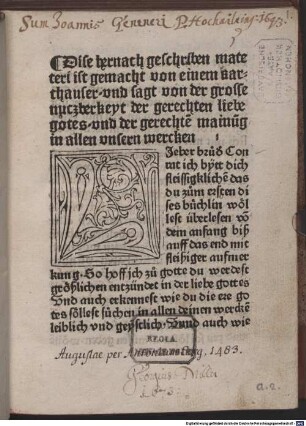 Sum Joannis Greneri P. Hochailzing. 1613.
¶Dise hernach geschriben mate
teri ist gemacht von einem kar-
thauser·vnd sagt von der grosse
nuczberkeyt der gerechten liebe
gotes·vnd der gerechtē mainūg
in allen vnsern wercken
Lieber brůd Con
rat ich byte dich
fleissigklichē das
du zům ersten di
ses büchlin wöl
lest überlesen vō
dem anfang biß
auff das end mit
fleißiger aufmer
kung·So hoff ich zů gotte du werdest
größlichen entzündet in der liebe gottes
Vnd auch erkennest wie du die ere go
tes söllest sůchen in allen deinen wercken
leiblich vnd geystlich·Vund auch wie
REGIA
Augustae per Antonium Sorg. 1483.
a.2.
Digitalisierung gefördert durch die Deutsche Forschungsgemeinschaft